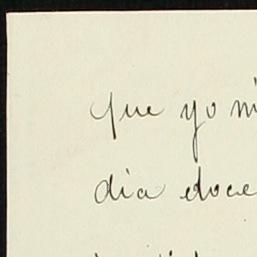 que yo ni
dia doce